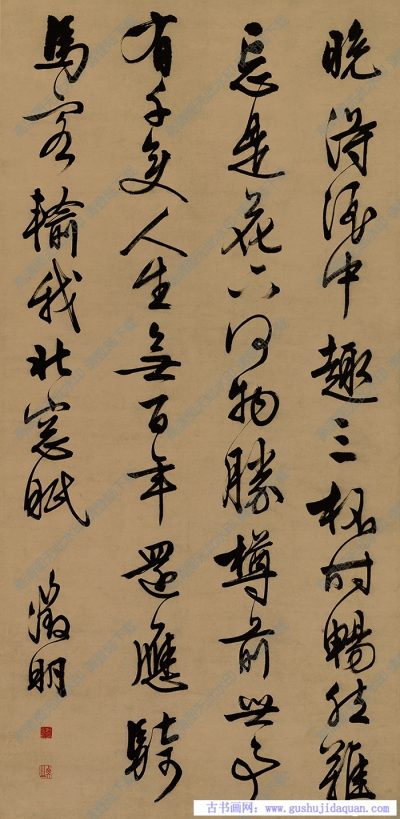 晚得酒中趣三杯時暢然難
忘是花下何物勝樽前世事
有千變人生無百年還應騎
馬客輸我北窓眠
徵明
古书画网：www.gushujidaquan.com